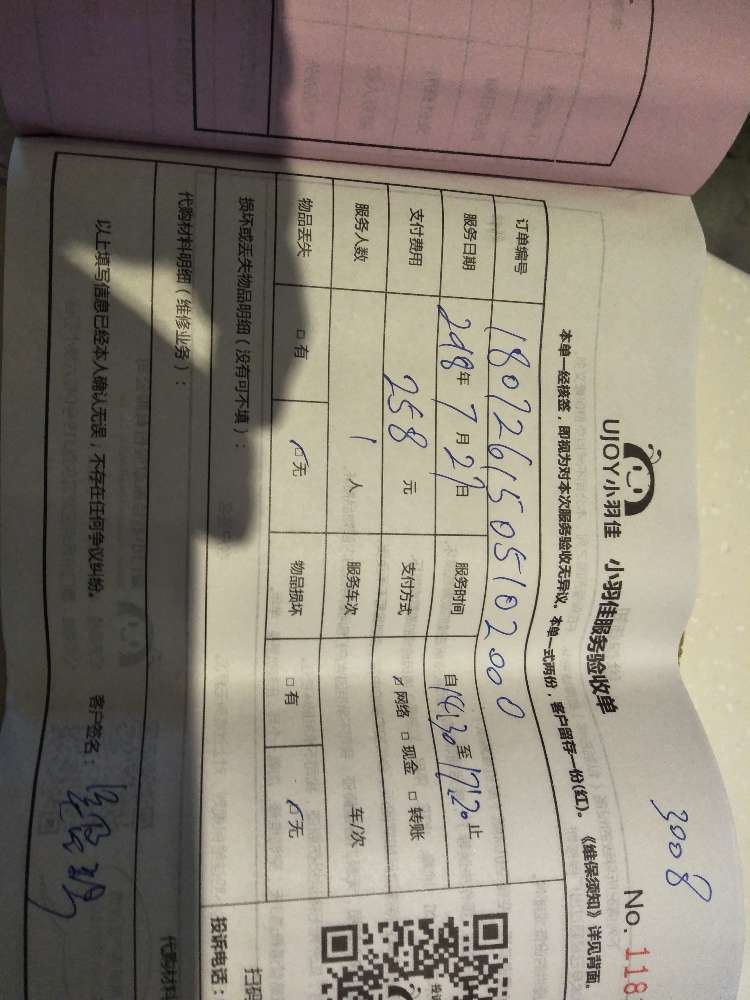 3008
No.118
UJOY小羽佳 小羽佳服务验收单
本单一经核签，即视为对本次服务验收无异议。本单一式两份，客户留存一份(红)。《维保须知》详见背面。
订单编号 1807261505102000
服务日期 2018年7月29日 服务时间 自14:30至17:20止
支付费用 258元 支付方式 ☑网络 □现金 □转账
服务人数 1人 服务车次 车/次
物品丢失 □有 ☑无 物品损坏 □有 ☑无
损坏或丢失物品明细（没有可不填）：
代购材料明细（维修业务）：
以上填写信息已经本人确认无误，不存在任何争议纠纷。 客户签名：
扫码
投诉电话：
代购材料